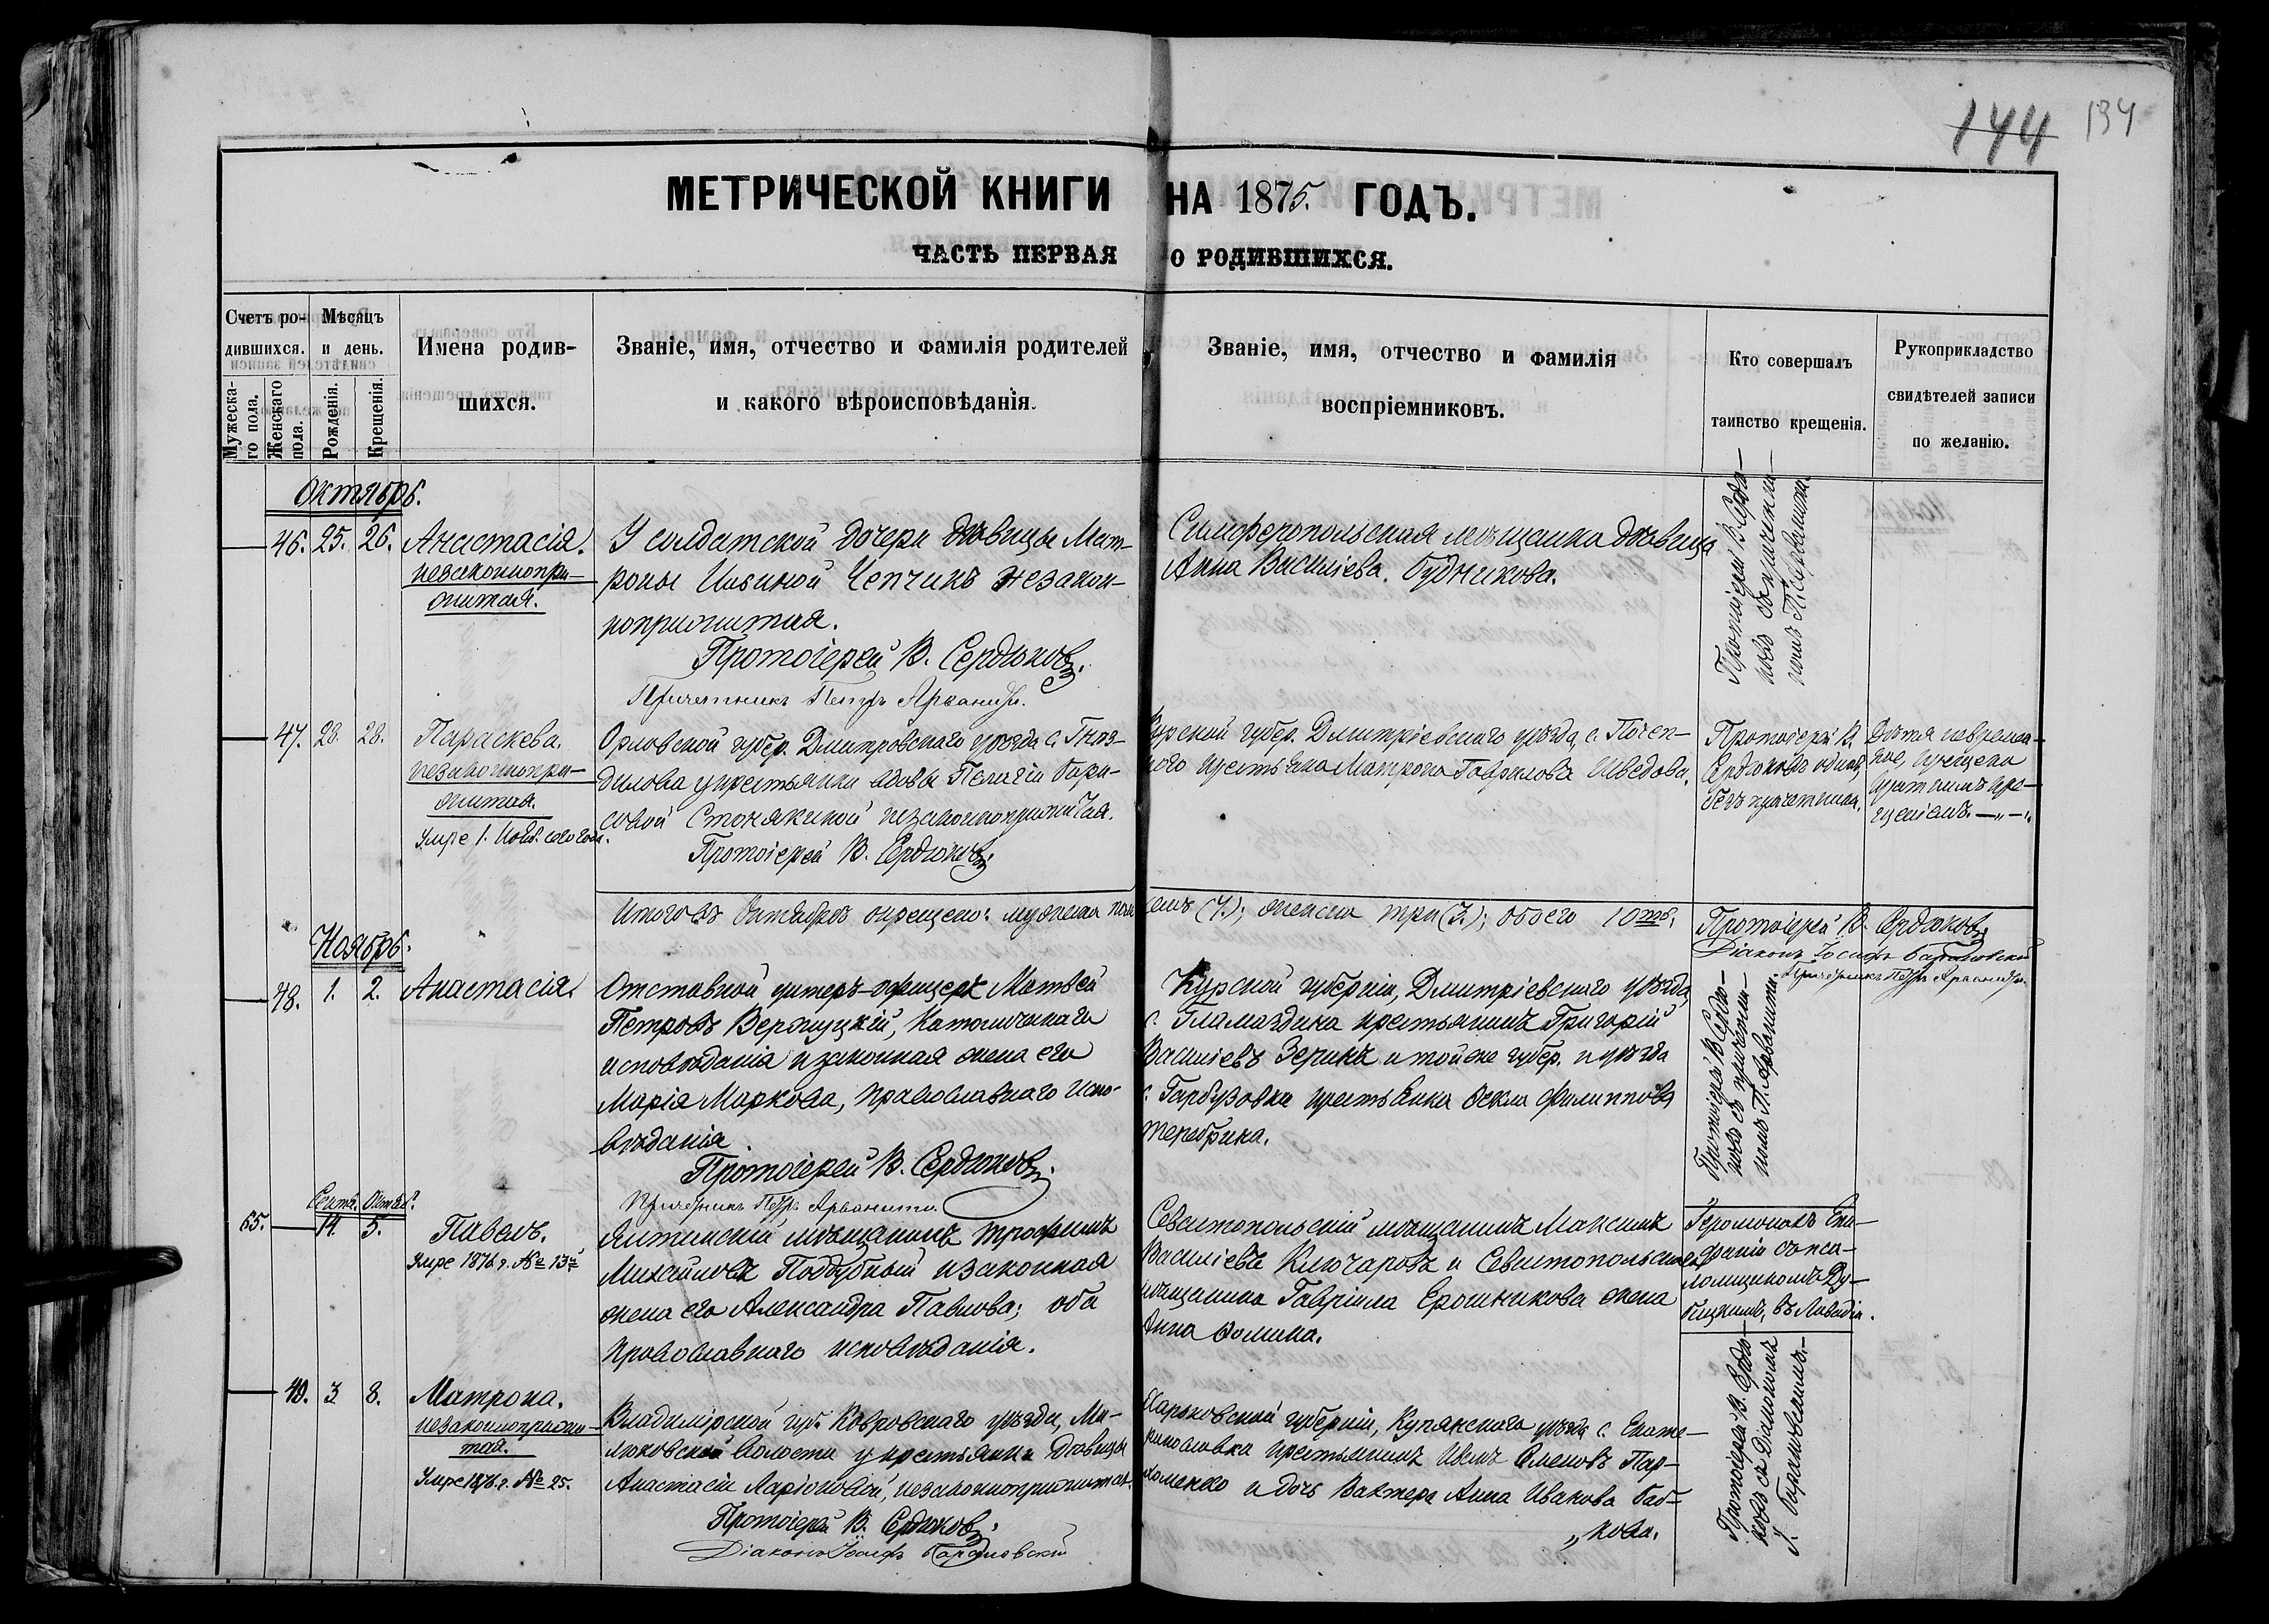 144 134
МЕТРИЧЕСКОЙ КНИГИ НА 1875. ГОДЪ.
ЧАСТЬ ПЕРВАЯ О РОДИВШИХСЯ.
Счетъ ро-
дившихся.
Мужеска-
го пола.
Женскаго
пола.
Мѣсяцъ
и день.
Рожденія.
Крещенія.
Имена родив-
шихся.
Званіе, имя, отчество и фамилія родителей
и какого вѣроисповѣданія.
Званіе, имя, отчество и фамилія
воспріемниковъ.
Кто совершалъ
таинство крещенія.
Рукоприкладство
свидѣтелей записи
по желанію.
Октябрь.
46. 25. 26. Анастасія.
незаконнопри-
житая.
У солдатской дочери дѣвицы Мат-
роны Ильиной Чепчикъ незакон-
ноприжитая.
Протоіерей В. Сердюковъ.
Причетникъ Петръ Арванити.
Симферопольская мѣщанка дѣвица
Анна Василіева Будникова.
Протоіерей В. Сердю-
ковъ съ причетни-
комъ П. Арванити.
47. 28. 28. Параскева.
незаконнопри-
житая.
Умре 1. Нояб. сего года.
Орловской губер. Дмитровскаго уѣзда с. Гнѣз-
дилова у крестьянки вдовы Пелагіи Бори-
совой Стонякиной незаконноприжитая.
Протоіерей В. Сердюковъ.
Курской губер. Дмитріевскаго уѣзда, с. Почеп-
ного крестьянка Матрона Гаврилова Шведова.
Протоіерей В.
Сердюковъ одинъ,
безъ причетника.
Дѣтя невремен-
ное, крещено
краткимъ кре-
щеніемъ.
Итого въ Октябрѣ окрещено: мужеска поломъ (7.); женска три (3.); обоего 10ть.
Протоіерей В. Сердюковъ
Діаконъ Іосифъ Барановскій
Причетникъ Петръ Арванити.
Ноябрь.
48. 1. 2. Анастасія.
Отставной унтеръ-офицеръ Матвѣй
Петровъ Вержуцкій, Католическаго
исповѣданія и законная жена его
Марія Маркова, православнаго испо-
вѣданія.
Протоіерей В. Сердюковъ.
Причетникъ Петръ Арванити.
Курской губерніи, Дмитріевскаго уѣзда,
с. Гламаздина крестьянинъ Григорій
Василіевъ Зеринъ и той же губер. и уѣзда
с. Гарбузовки крестьянка Ѳекла Филиппова
Теребрина.
Протоіерей В. Сердю-
ковъ съ причетни-
комъ П. Арванити.
Сентя. Октяб.
65. 14. 5. Павелъ.
Умре 1876 г. № 13й
Ялтинскій мѣщанинъ Трофимъ
Михайловъ Поддубный и законная
жена его Александра Павлова; оба
православнаго исповѣданія.
Севастопольскій мѣщанинъ Максимъ
Василіевъ Ключаровъ и Севастопольскаго
мѣщанина Гавріила Ерошникова жена
Анна Ѳомина.
Іеромонахъ Епи-
фаній съ пса-
ломщикомъ Ру-
бицкимъ, въ Ливадіи.
49. 3 8. Матрона.
незаконноприжи-
тая.
Умре 1876 г. № 25.
Владимірской губ. Ковровскаго уѣзда, Ми-
люковской волости у крестьянки дѣвицы
Анастасіи Ларіоновой, незаконноприжитая.
Протоіерей В. Сердюковъ.
Діаконъ Іосифъ Барановскій
Харьковской губерніи, Купянскаго уѣзда с. Екате-
ринославка крестьянинъ Иванъ Семеновъ Пар-
хоменко и дочь Вахтера Анна Иванова Баб-
кова.
Протоіерей В. Сердю-
ковъ съ Діакономъ
І. Барановскимъ.